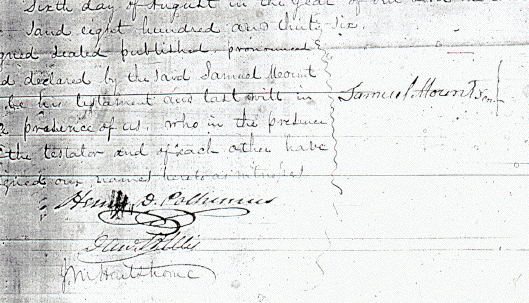 Sixth day of August in the year of our
sand eight hundred and thirty six.
igned sealed published, pronounced &
d declared by the said Samuel Mount
be his testament and last will in
e presence of us, who in the presence
the testator and of each other have
igned our names hereto as witnesses
Samuel Mount
Henry D. Polhemus